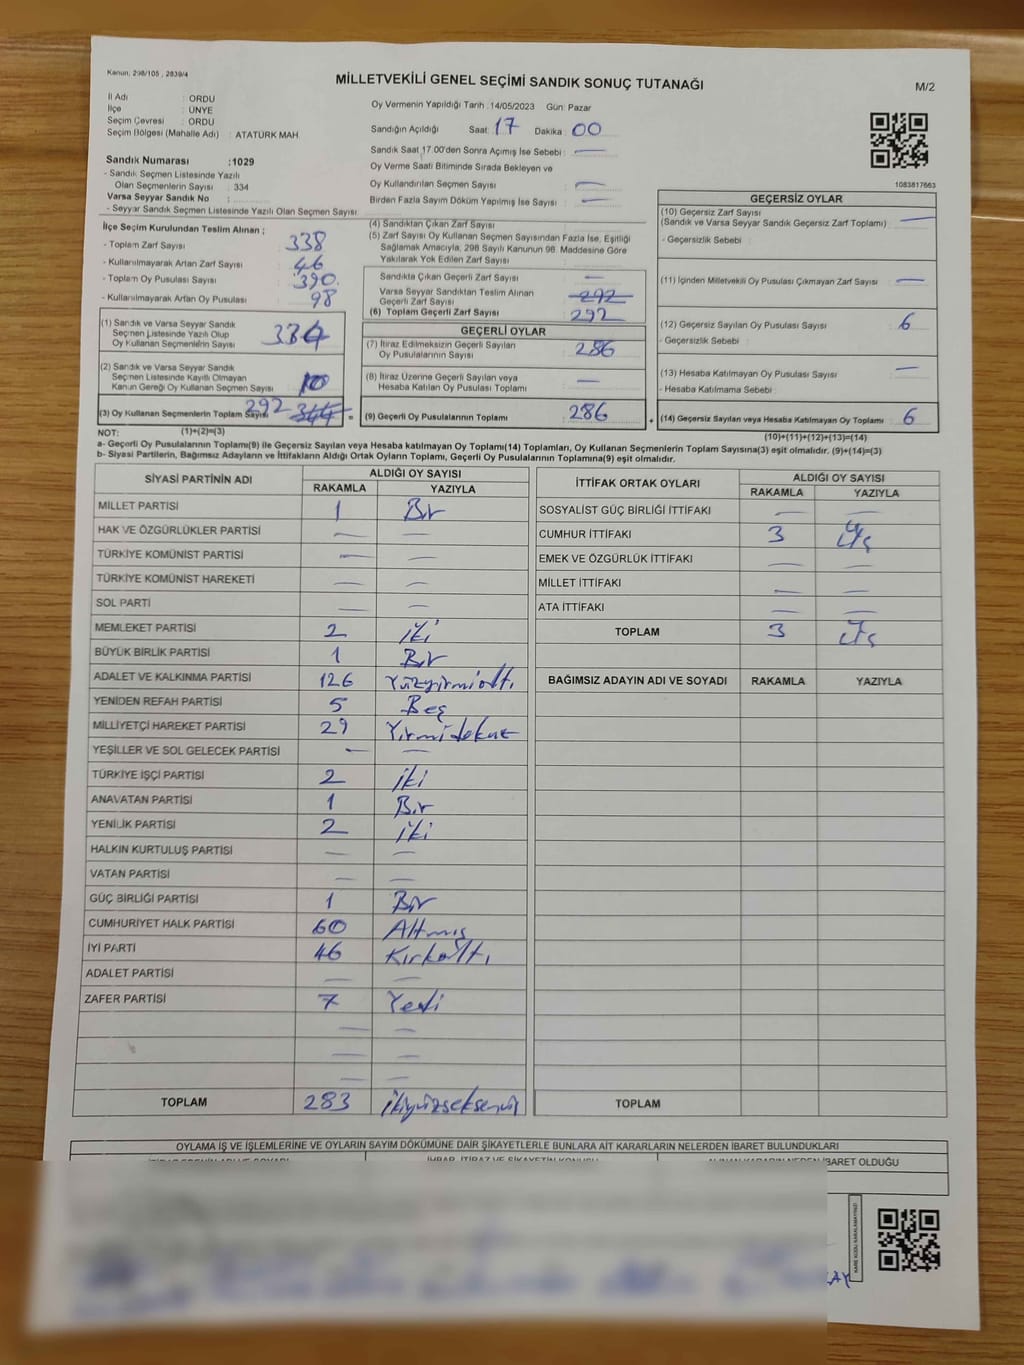 Kanun, 298/105 , 2839/4
MİLLETVEKİLİ GENEL SEÇİMİ SANDIK SONUÇ TUTANAĞI
M/2
İl Adı : ORDU
İlçe : ÜNYE
Seçim Çevresi : ORDU
Seçim Bölgesi (Mahalle Adı) : ATATÜRK MAH
Oy Vermenin Yapıldığı Tarih : 14/05/2023 Gün: Pazar
Sandığın Açıldığı Saat: 17 Dakika: 00
Sandık Saat 17.00'den Sonra Açılmış İse Sebebi : —
Oy Verme Saati Bitiminde Sırada Bekleyen ve
Oy Kullandırılan Seçmen Sayısı : —
Birden Fazla Sayım Döküm Yapılmış İse Sayısı : —
1083817663
Sandık Numarası : 1029
- Sandık Seçmen Listesinde Yazılı
Olan Seçmenlerin Sayısı : 334
Varsa Seyyar Sandık No :
- Seyyar Sandık Seçmen Listesinde Yazılı Olan Seçmen Sayısı:
İlçe Seçim Kurulundan Teslim Alınan ;
- Toplam Zarf Sayısı : 338
- Kullanılmayarak Artan Zarf Sayısı : 46
- Toplam Oy Pusulası Sayısı : 390
- Kullanılmayarak Artan Oy Pusulası : 98
(1) Sandık ve Varsa Seyyar Sandık
Seçmen Listesinde Yazılı Olup
Oy Kullanan Seçmenlerin Sayısı 334
(2) Sandık ve Varsa Seyyar Sandık
Seçmen Listesinde Kayıtlı Olmayan
Kanun Gereği Oy Kullanan Seçmen Sayısı 10
(3) Oy Kullanan Seçmenlerin Toplam Sayısı 292 344
(1)+(2)=(3)
(4) Sandıktan Çıkan Zarf Sayısı :
(5) Zarf Sayısı Oy Kullanan Seçmen Sayısından Fazla İse, Eşitliği
Sağlamak Amacıyla, 298 Sayılı Kanunun 98. Maddesine Göre
Yakılarak Yok Edilen Zarf Sayısı :
Sandıkta Çıkan Geçerli Zarf Sayısı : —
Varsa Seyyar Sandıktan Teslim Alınan
Geçerli Zarf Sayısı : 292
(6) Toplam Geçerli Zarf Sayısı : 292
GEÇERLİ OYLAR
(7) İtiraz Edilmeksizin Geçerli Sayılan
Oy Pusulalarının Sayısı : 286
(8) İtiraz Üzerine Geçerli Sayılan veya
Hesaba Katılan Oy Pusulası Toplamı : —
= (9) Geçerli Oy Pusulalarının Toplamı : 286
GEÇERSİZ OYLAR
(10) Geçersiz Zarf Sayısı
(Sandık ve Varsa Seyyar Sandık Geçersiz Zarf Toplamı) : —
- Geçersizlik Sebebi :
(11) İçinden Milletvekili Oy Pusulası Çıkmayan Zarf Sayısı : —
(12) Geçersiz Sayılan Oy Pusulası Sayısı : 6
- Geçersizlik Sebebi :
(13) Hesaba Katılmayan Oy Pusulası Sayısı : —
- Hesaba Katılmama Sebebi :
+ (14) Geçersiz Sayılan veya Hesaba Katılmayan Oy Toplamı : 6
(10)+(11)+(12)+(13)=(14)
NOT:
a- Geçerli Oy Pusulalarının Toplamı(9) ile Geçersiz Sayılan veya Hesaba katılmayan Oy Toplamı(14) Toplamları, Oy Kullanan Seçmenlerin Toplam Sayısına(3) eşit olmalıdır. (9)+(14)=(3)
b- Siyasi Partilerin, Bağımsız Adayların ve İttifakların Aldığı Ortak Oyların Toplamı, Geçerli Oy Pusulalarının Toplamına(9) eşit olmalıdır.
SİYASİ PARTİNİN ADI ALDIĞI OY SAYISI
RAKAMLA YAZIYLA
MİLLET PARTİSİ 1 Bir
HAK VE ÖZGÜRLÜKLER PARTİSİ — —
TÜRKİYE KOMÜNİST PARTİSİ — —
TÜRKİYE KOMÜNİST HAREKETİ — —
SOL PARTİ — —
MEMLEKET PARTİSİ 2 iki
BÜYÜK BİRLİK PARTİSİ 1 Bir
ADALET VE KALKINMA PARTİSİ 126 Yüzyirmialtı
YENİDEN REFAH PARTİSİ 5 Beş
MİLLİYETÇİ HAREKET PARTİSİ 29 Yirmidokuz
YEŞİLLER VE SOL GELECEK PARTİSİ — —
TÜRKİYE İŞÇİ PARTİSİ 2 iki
ANAVATAN PARTİSİ 1 Bir
YENİLİK PARTİSİ 2 iki
HALKIN KURTULUŞ PARTİSİ — —
VATAN PARTİSİ — —
GÜÇ BİRLİĞİ PARTİSİ 1 Bir
CUMHURİYET HALK PARTİSİ 60 Altmış
İYİ PARTİ 46 Kırkaltı
ADALET PARTİSİ — —
ZAFER PARTİSİ 7 Yedi
— —
— —
— —
TOPLAM 283 ikiyüzseksenüç
İTTİFAK ORTAK OYLARI ALDIĞI OY SAYISI
RAKAMLA YAZIYLA
SOSYALİST GÜÇ BİRLİĞİ İTTİFAKI — —
CUMHUR İTTİFAKI 3 üç
EMEK VE ÖZGÜRLÜK İTTİFAKI — —
MİLLET İTTİFAKI — —
ATA İTTİFAKI — —
TOPLAM 3 üç
BAĞIMSIZ ADAYIN ADI VE SOYADI RAKAMLA YAZIYLA
TOPLAM
OYLAMA İŞ VE İŞLEMLERİNE VE OYLARIN SAYIM DÖKÜMÜNE DAİR ŞİKAYETLERLE BUNLARA AİT KARARLARIN NELERDEN İBARET BULUNDUKLARI
İHBAR, İTİRAZ VE ŞİKAYETİN KONUSU
ALINAN KARARIN NEDEN İBARET OLDUĞU
KARE KODU KARALAMAYINIZ!
AY